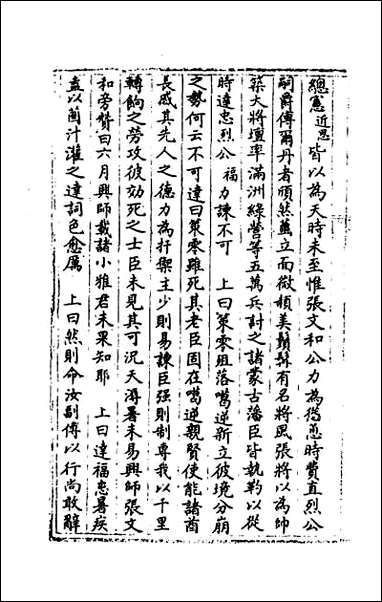 總憲近思皆以為天時未至惟張文和公力為慫恿時費直烈公
嗣爵傅爾丹者頎然鵠立而微頳美鬚髯有名將風張將以為帥
築大將壇率滿洲綠營等五萬兵討之諸蒙古藩臣皆執靮以從
時達忠烈公福力諫不可 上曰策零殂落噶逆新立彼境分崩
之勢何云不可達曰策零雖死其老臣固在噶逆親賢使能諸酋
長感其先人之德力為扞禦主少則易諫臣强則制專我以千里
轉餉之勞攻彼効死之士臣未見其可況天溽暑未易興師張文
和旁贊曰六月興師載諸小雅君未果知耶 上曰達福患暑疾
盍以茵汁灌之達詞色愈厲 上曰然則命汝副傅以行尚敢辭